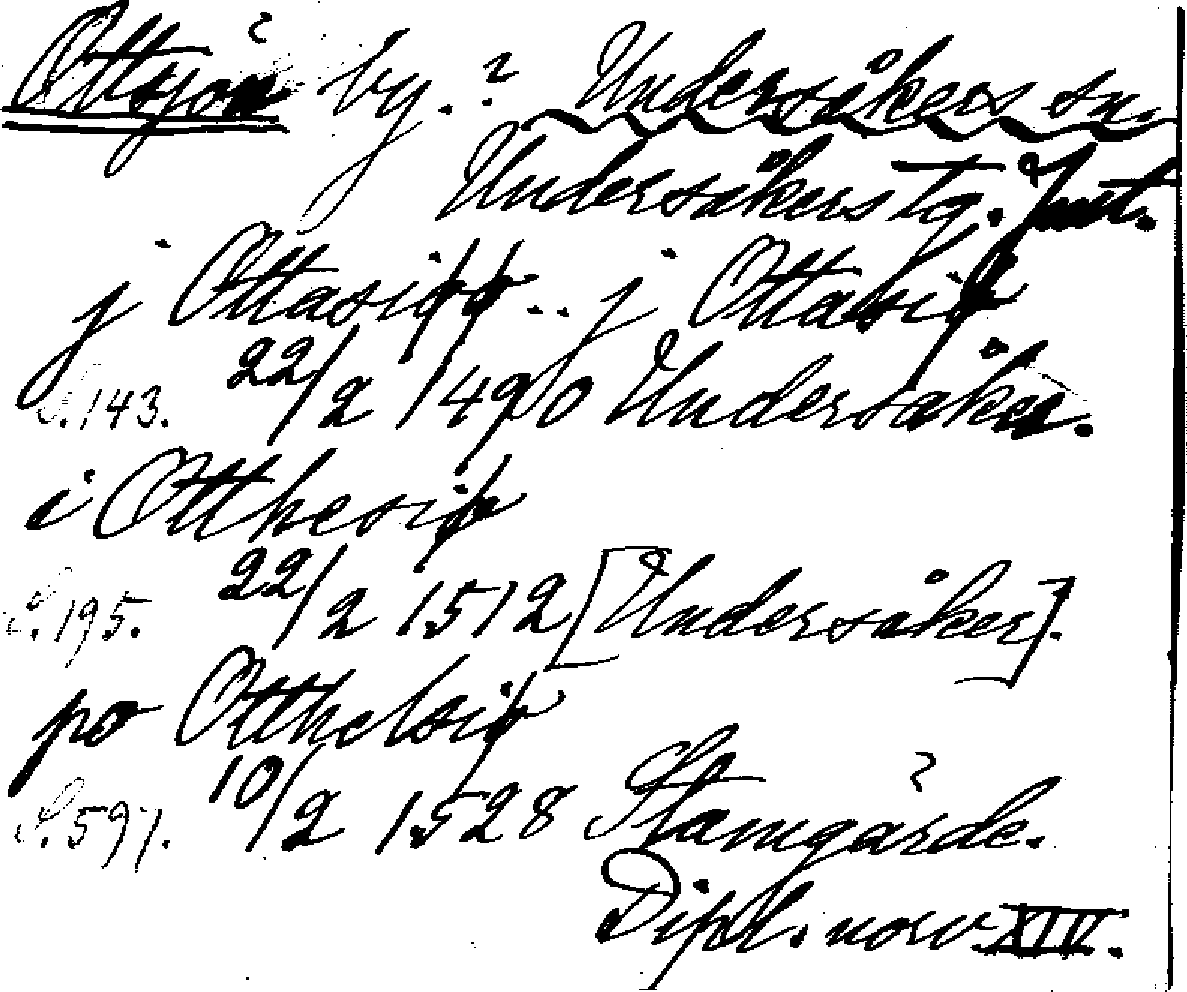 Ottsjön by. Undersåkers sn.
Undersåkers tg. Jmt.
j Ottasiøø .. j Ottasiø
S. 143. 22/2 1490 Undersåker.
i Otthesiø
S. 195. 22/2 1512 [Undersåker].
po Otthelsiø
S. 597. 10/2 1528 Stamgärde.
Dipl. norv XIV.